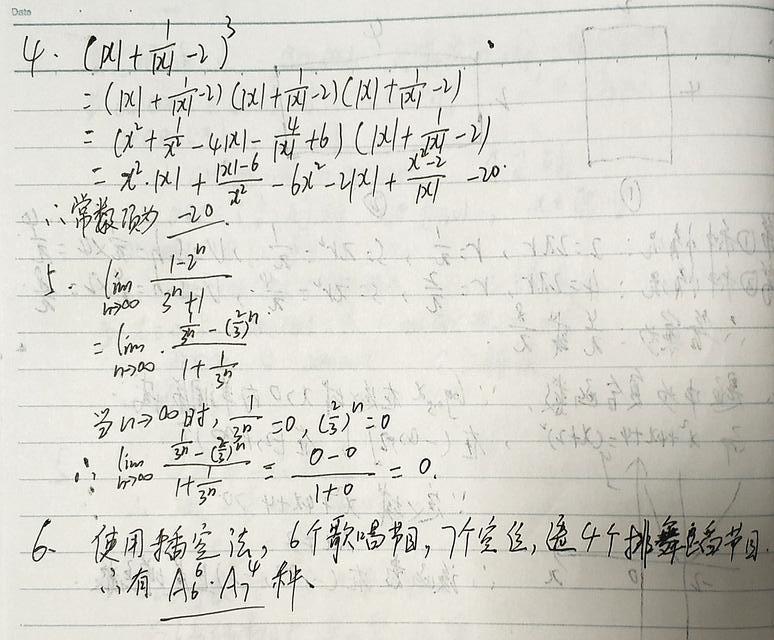 Date
4. (|x| + 1/|x| - 2)³
= (|x| + 1/|x| - 2) (|x| + 1/|x| - 2) (|x| + 1/|x| - 2)
= (x² + 1/x² - 4|x| - 4/|x| + 6) (|x| + 1/|x| - 2)
= x²·|x| + (|x|-6)/x² - 6x² - 2|x| + (x²-2)/|x| - 20.
∴常数项为 -20.
5. lim n→∞ (1-2ⁿ)/(3ⁿ+1)
= lim n→∞ (1/3ⁿ - (2/3)ⁿ)/(1 + 1/3ⁿ)
当n→∞时, 1/3ⁿ = 0, (2/3)ⁿ = 0
∴ lim n→∞ (1/3ⁿ - (2/3)ⁿ)/(1 + 1/3ⁿ) = (0-0)/(1+0) = 0.
6. 使用插空法, 6个歌唱节目, 7个空位, 选4个排舞蹈节目.
∴有 A₆⁶·A₇⁴ 种.